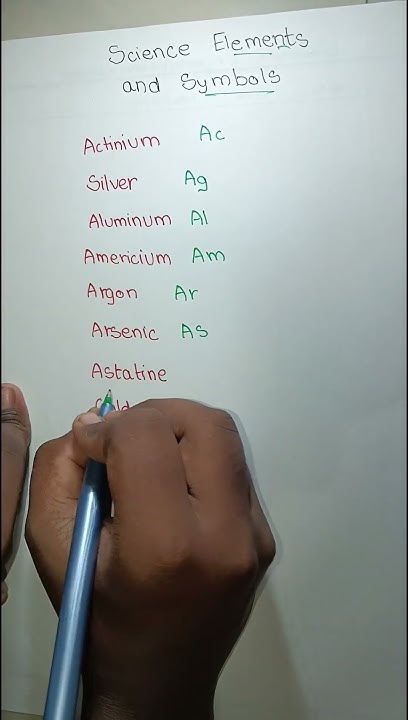 Science Elements
and Symbols
Actinium Ac
Silver Ag
Aluminum Al
Americium Am
Argon Ar
Arsenic As
Astatine